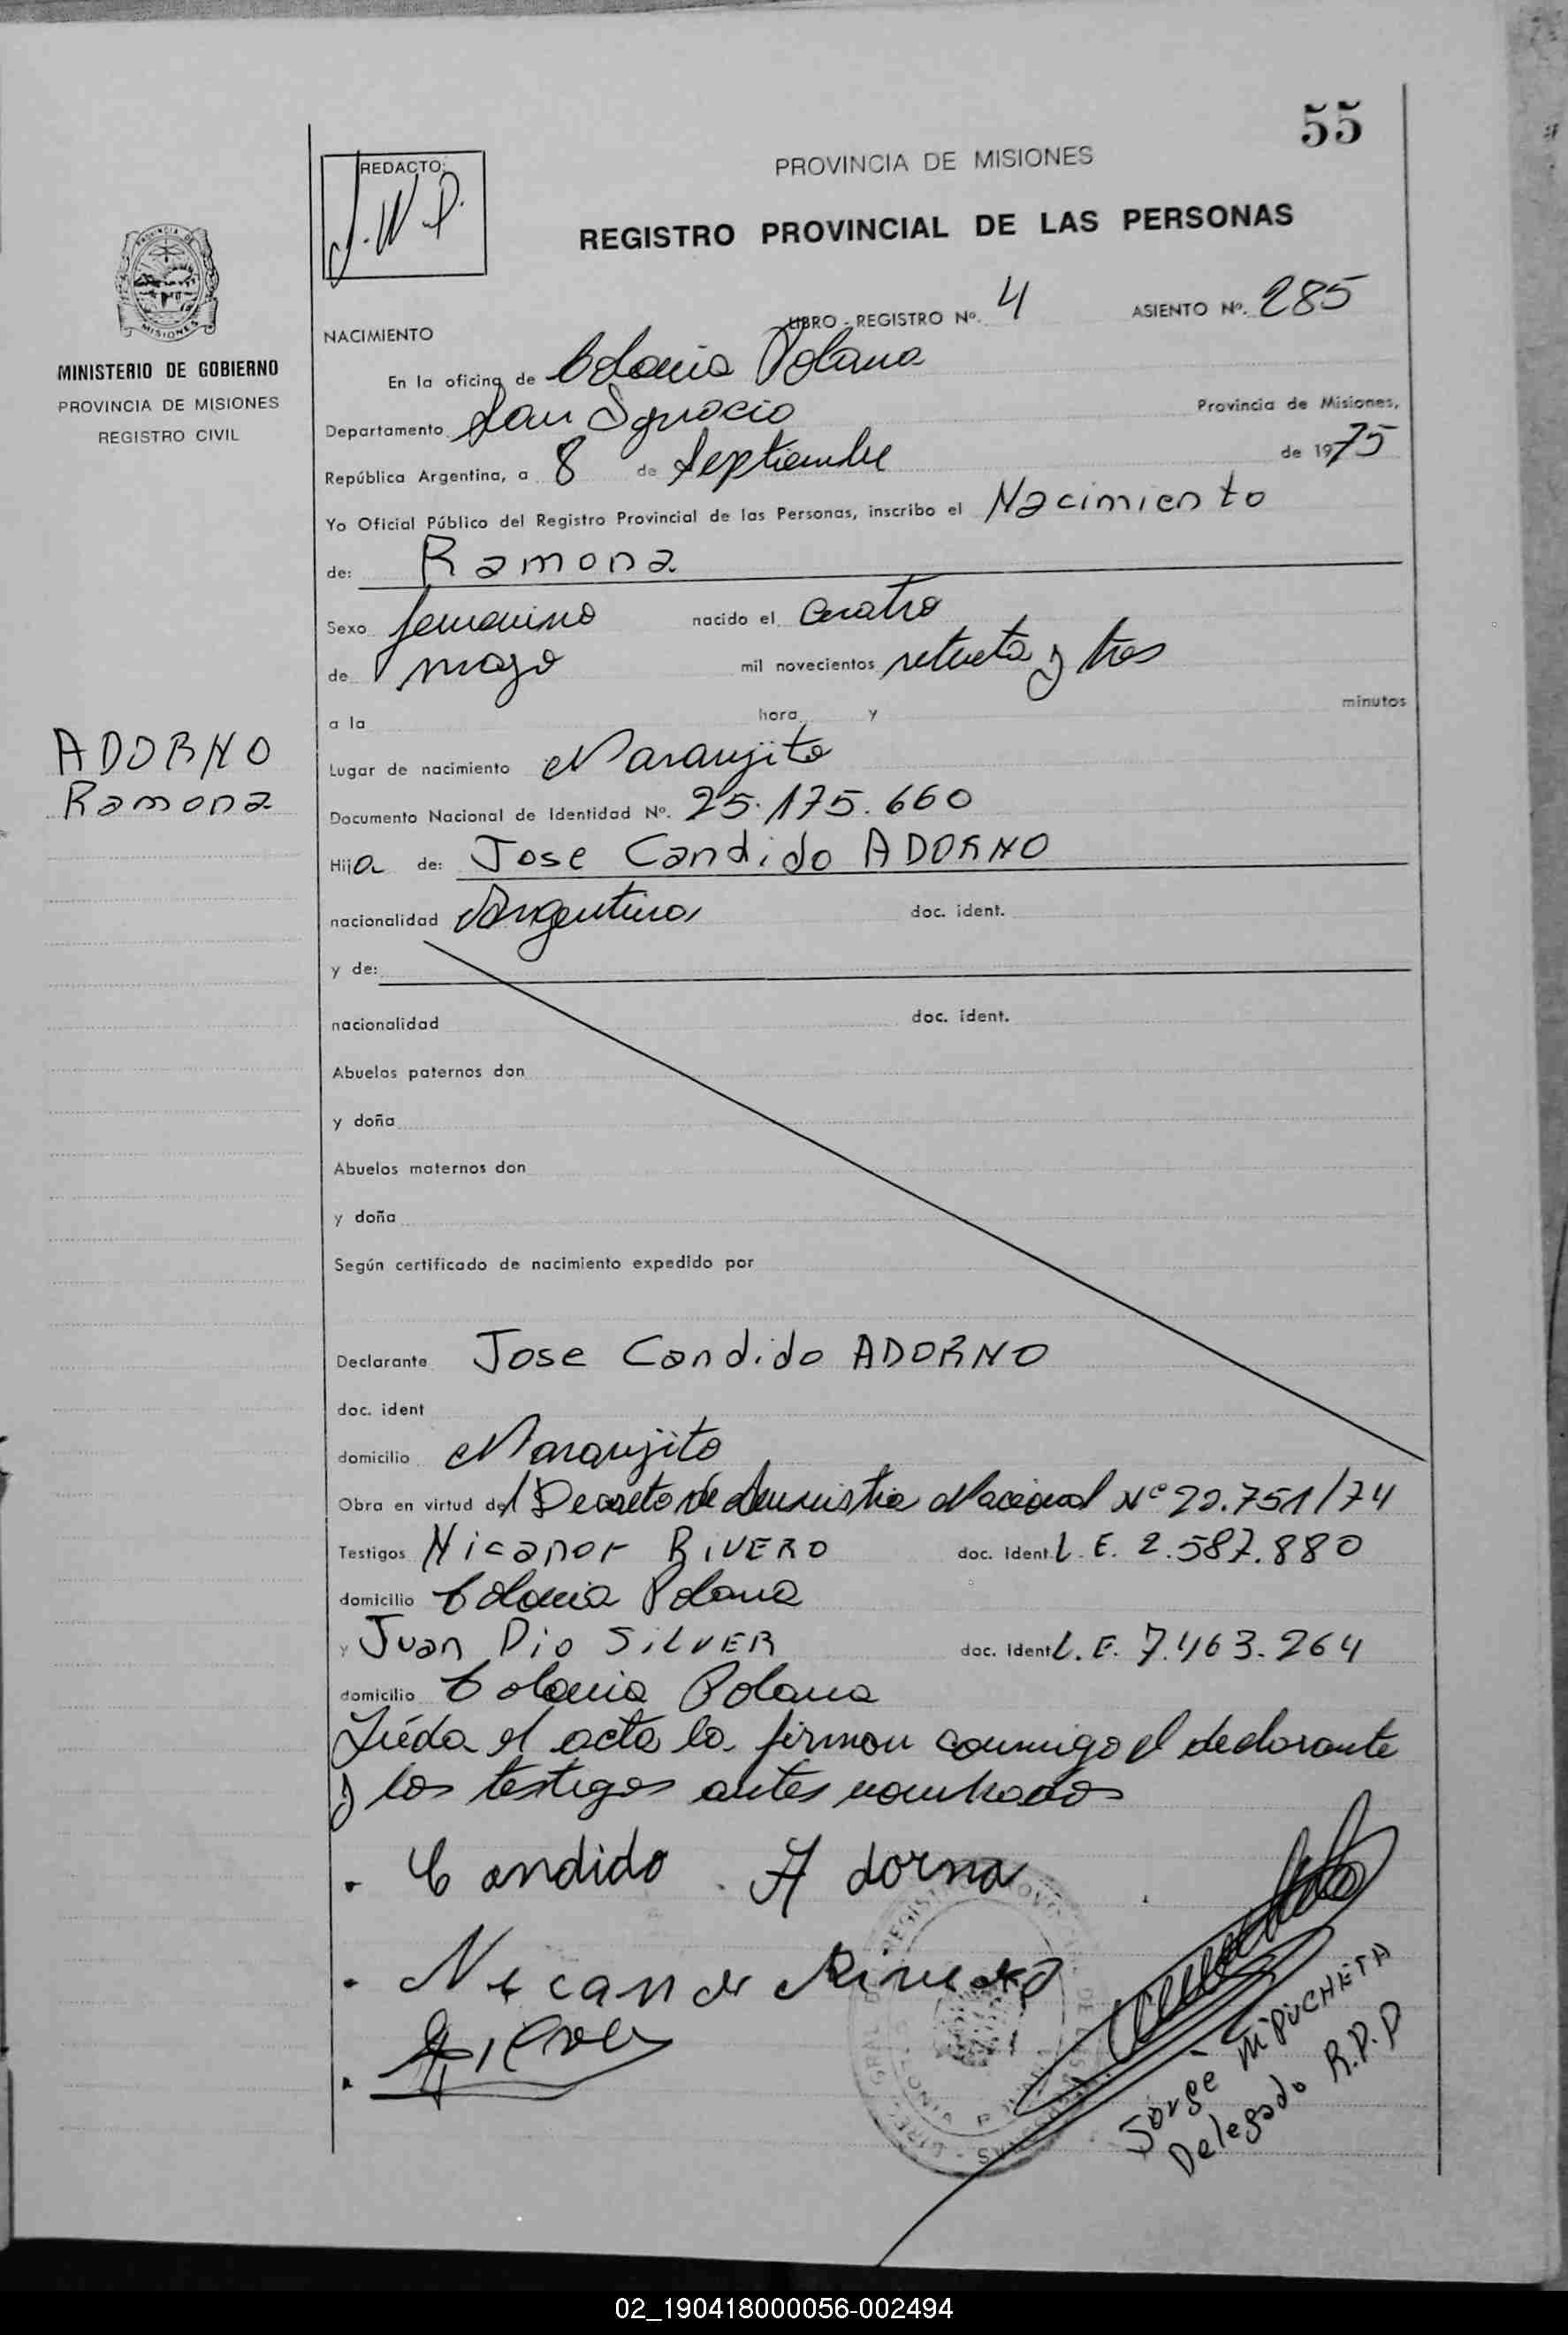 55
REDACTO:
J.W.P.
PROVINCIA DE MISIONES
REGISTRO PROVINCIAL DE LAS PERSONAS
PROVINCIA DE
MISIONES
MINISTERIO DE GOBIERNO
PROVINCIA DE MISIONES
REGISTRO CIVIL
ADORNO
Ramona
NACIMIENTO LIBRO - REGISTRO Nº. 4 ASIENTO Nº. 285
En la oficina de Colonia Polana
Departamento San Ignacio Provincia de Misiones,
República Argentina, a 8 de Septiembre de 1975
Yo Oficial Público del Registro Provincial de las Personas, inscribo el Nacimiento
de: Ramona
Sexo femenino nacido el cuatro
de mayo mil novecientos setenta y tres
a la hora y minutos
Lugar de nacimiento Naranjito
Documento Nacional de Identidad Nº. 25.175.660
Hija de: Jose Candido ADORNO
nacionalidad Argentina doc. ident.
y de:
nacionalidad doc. ident.
Abuelos paternos don
y doña
Abuelos maternos don
y doña
Según certificado de nacimiento expedido por
Declarante Jose Candido ADORNO
doc. ident
domicilio Naranjito
Obra en virtud del Decreto de Amnistia Nacional Nº 20.751/74
Testigos Nicanor RIVERO doc. Ident L. E. 2.587.880
domicilio Colonia Polana
y Juan Pio SILVER doc. Ident L. E. 7.463.264
domicilio Colonia Polana
Leída el acta la firman conmigo el declarante
y los testigos antes nombrados
. Candido Adorno
. Nicanor Rivero
. Silver
Jorge M PUCHETA
Delegado R.P.P
02_190418000056-002494